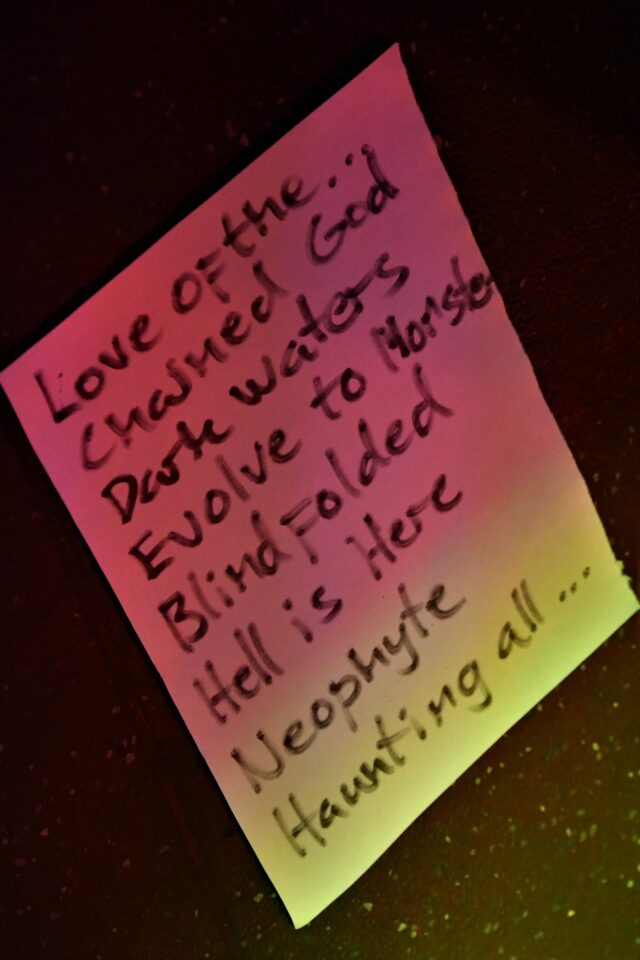 Love of the...
Chained God
Dark waters
Evolve to Monster
Blindfolded
Hell is Here
Neophyte
Haunting all...